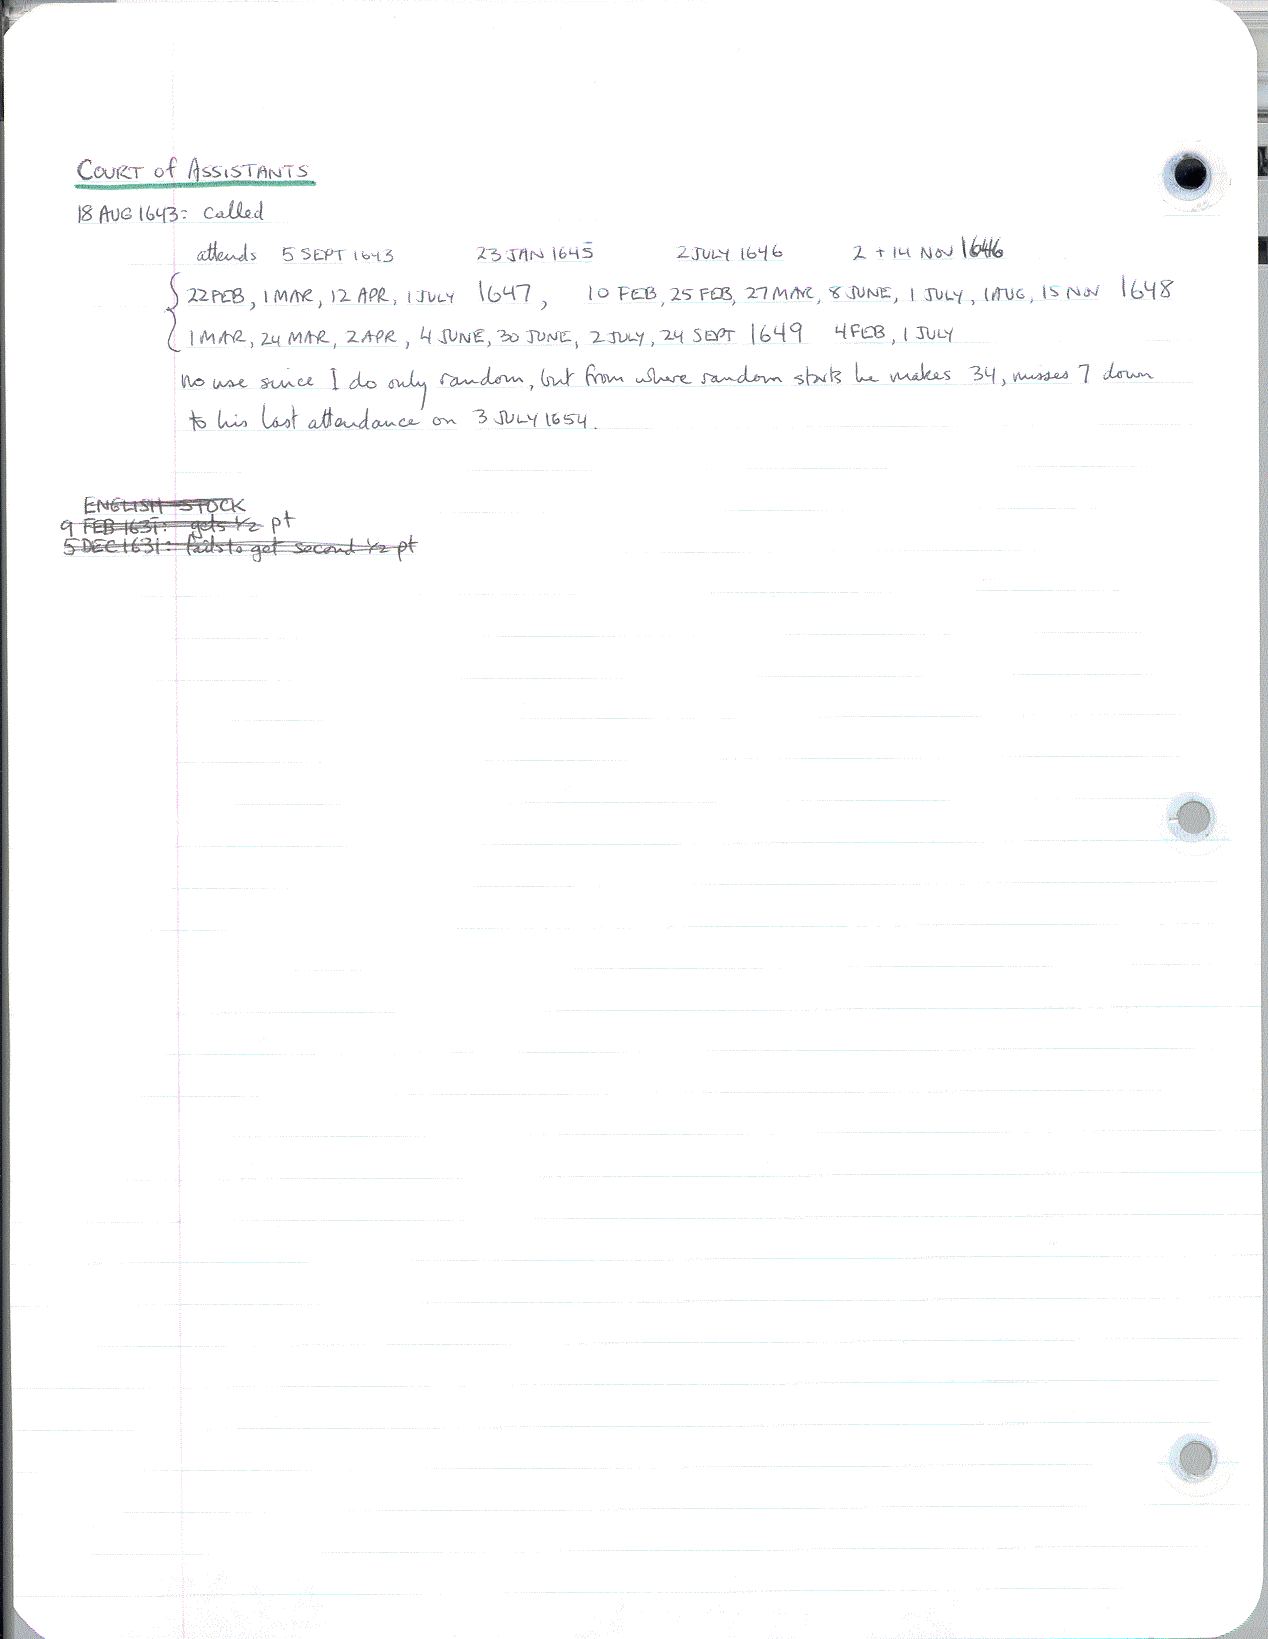 COURT of ASSISTANTS
18 AUG 1643: called
attends 5 SEPT 1643 23 JAN 1645 2 JULY 1646 2 + 14 NOV 1646
22 FEB, 1 MAR, 12 APR, 1 JULY 1647, 10 FEB, 25 FEB, 27 MAR, 8 JUNE, 1 JULY, 1 AUG, 15 NOV 1648
1 MAR, 24 MAR, 2 APR, 4 JUNE, 30 JUNE, 2 JULY, 24 SEPT 1649 4 FEB, 1 JULY
no use since I do only random, but from where random starts he makes 34, misses 7 down
to his last attendance on 3 JULY 1654.
ENGLISH STOCK
9 FEB 1631: gets 1/2 pt
5 DEC 1631: fails to get second 1/2 pt